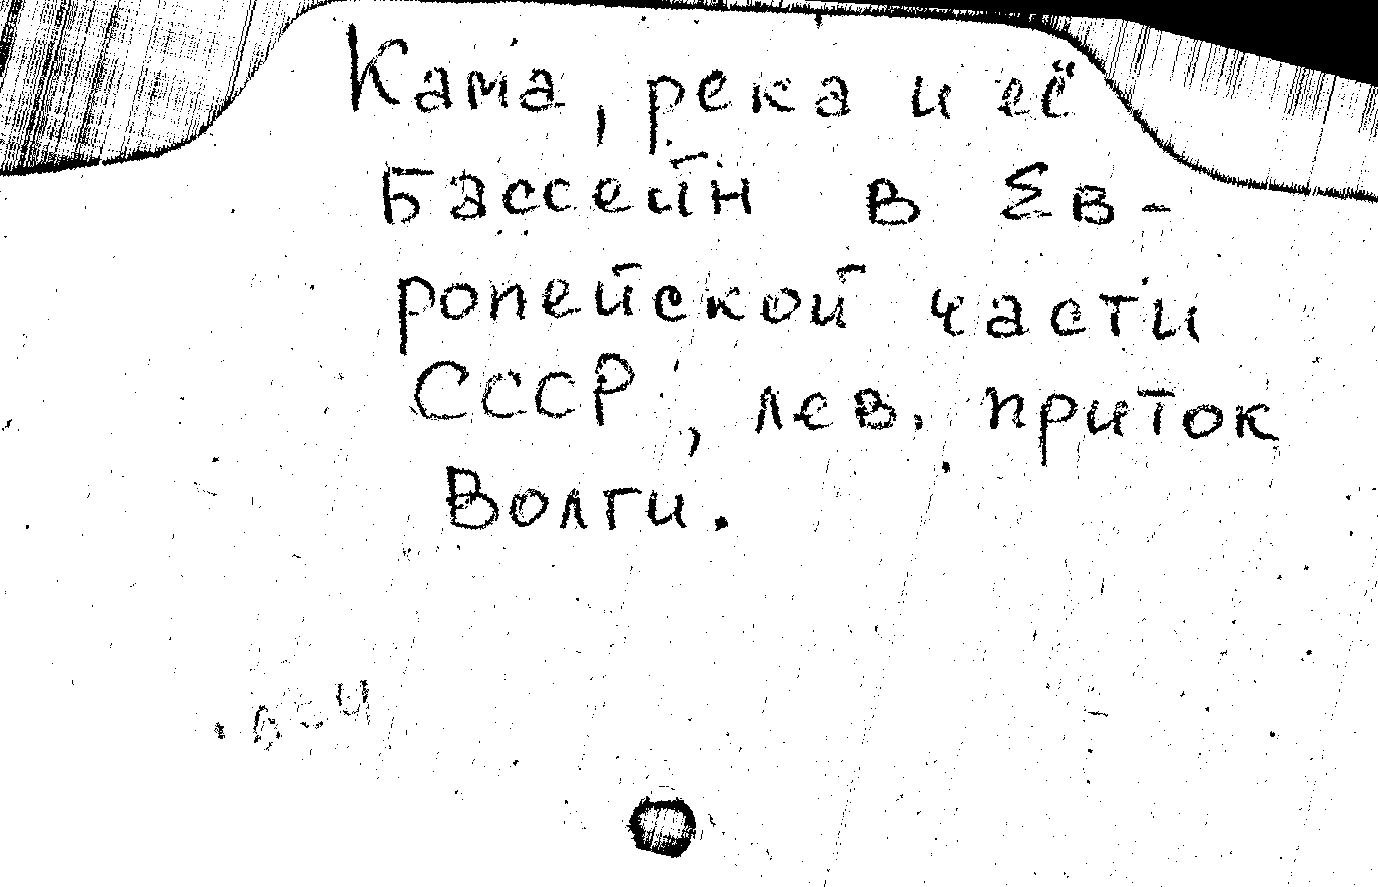 Кама, река и её
бассейн в Ев-
ропейской части
СССР, лев. приток
Волги.